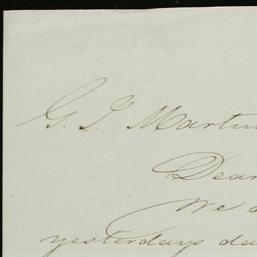 G. J. Martin
Dear
We a
yesterdays da